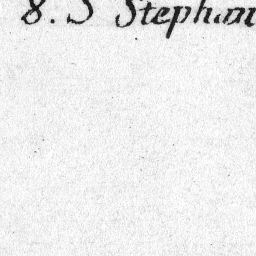 8. S Stephani